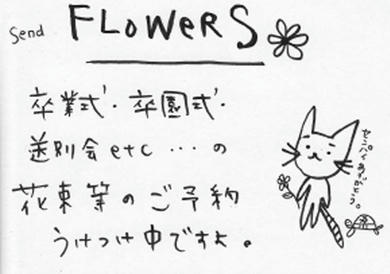 Send FLOWERS
卒業式・卒園式・
送別会etc…の
花束等のご予約
うけつけ中ですよ。
せんぱいありがとう。